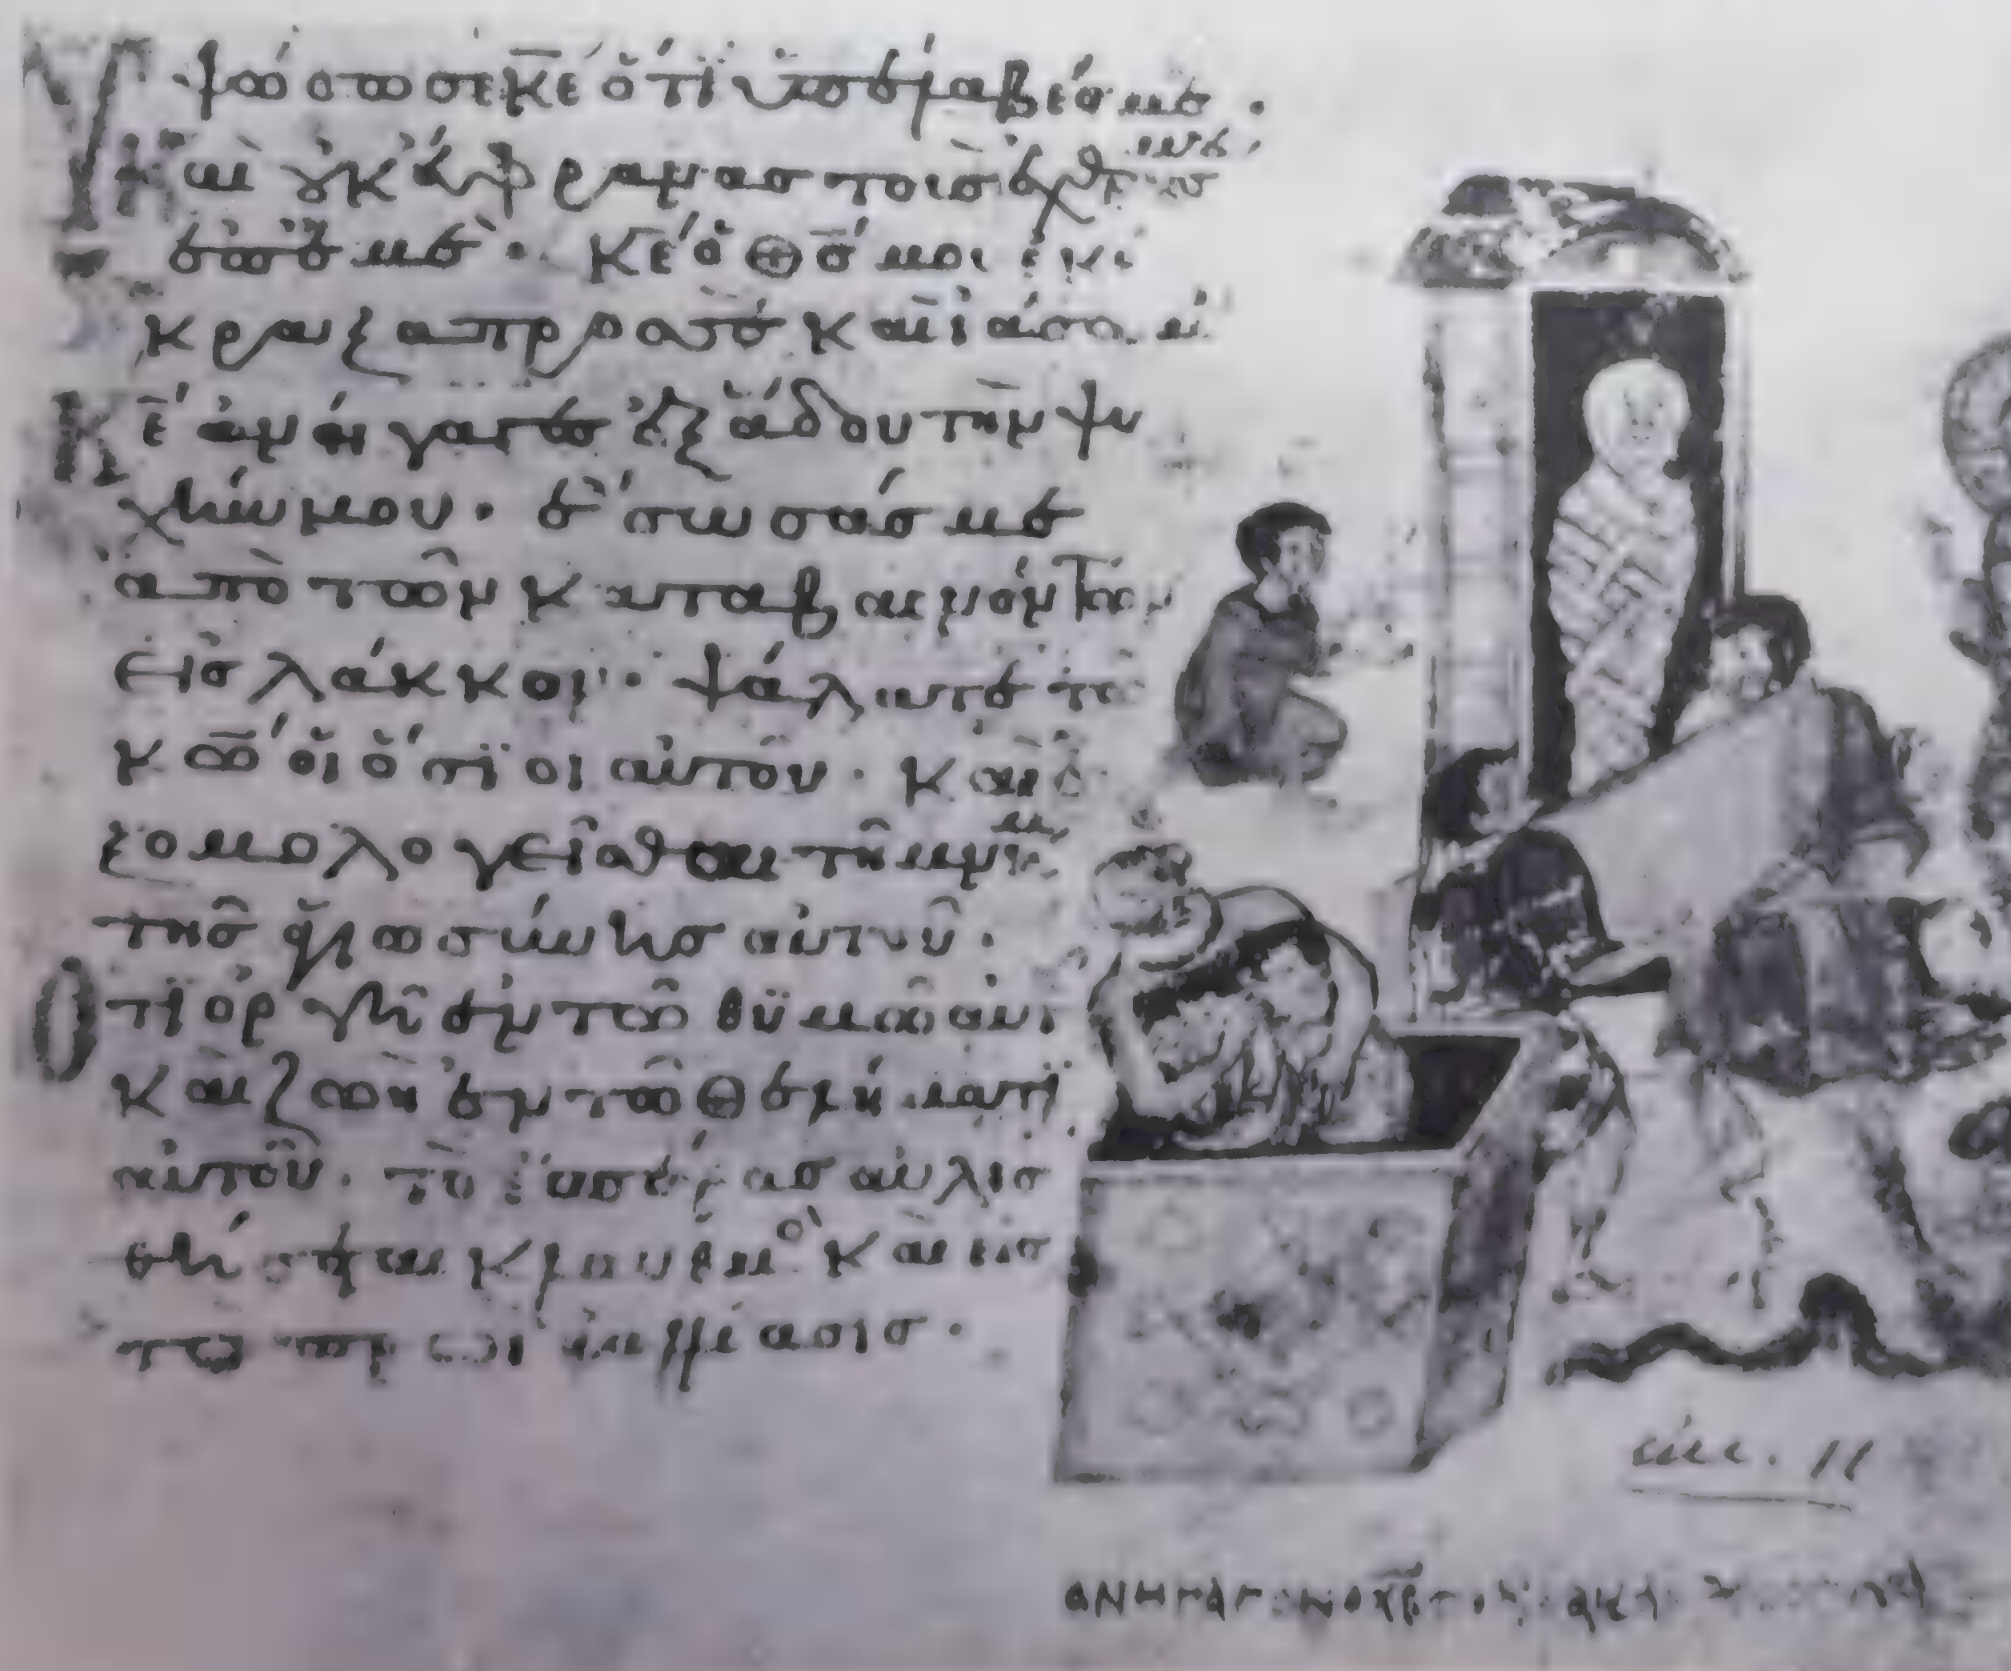 Ὑψώσω σε κ̅ε̅ ὅτι ὑπέλαβές με ·
καὶ οὐκ εὔφρανας τοὺς ἐχθρούς μου
ἐπ' ἐμέ · κ̅ε̅ ὁ θ̅ς̅ μου ἐκέ
κραξα πρὸς σέ καὶ ἰάσω με
Κ̅ε̅ ἀνήγαγες ἐξ ἅδου τὴν ψυ
χήν μου · ἔσωσάς με
ἀπὸ τῶν καταβαινόντων
εἰς λάκκον · ψάλατε τῶ
κ̅ω̅ οἱ ὅσιοι αὐτοῦ · καὶ ἐ
ξομολογεῖσθαι τῆ μνήμη
τῆς ἁγιωσύνης αὐτοῦ ·
Ὅτι ὀργὴ ἐν τῶ θυμῶ αὐτοῦ
καὶ ζωὴ ἐν τῶ θελήματι
αὐτοῦ · τὸ ἑσπέρας αὐλισ
θήσεται κλαυθμὸς καὶ εἰς
τὸ πρωὶ ἀγαλλίασις ·
11